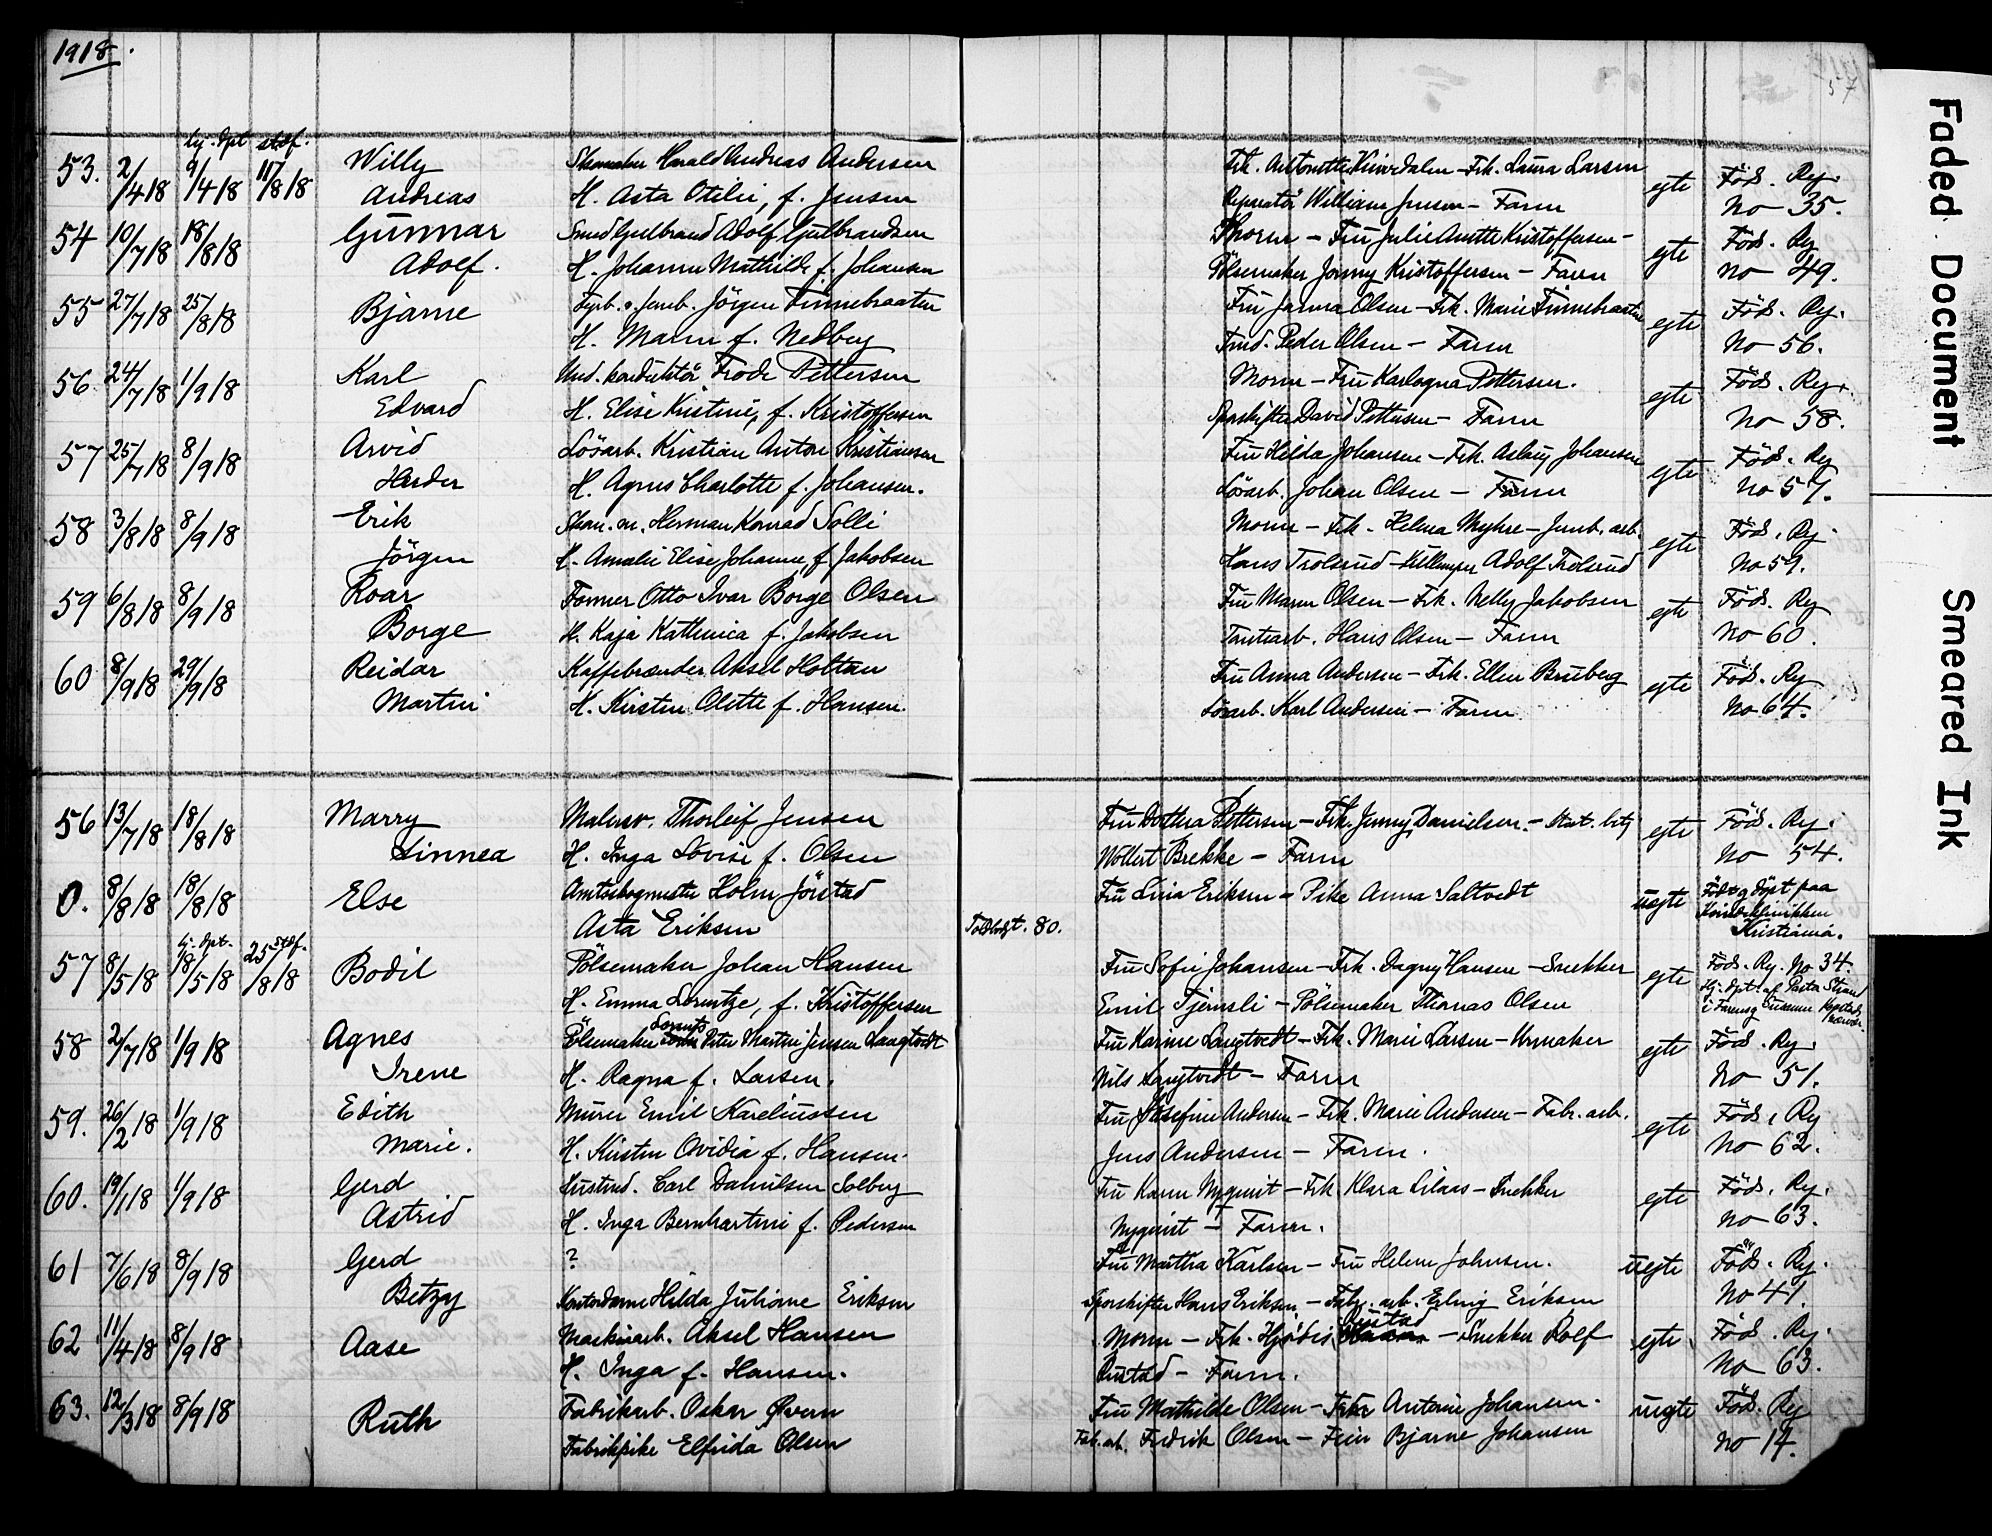 1918.
57
hj. dpt stdf.
53. 2/4 18 9/4 18 11/8 18 Willy Harald Andreas Andersen Frk. Antonette Kinnedalen - Frk. Laura Larsen
Andreas H. Asta Otilie, f. Jensen Reparatør William Jensen - Faren egte Föds. Rg. No 35.
54 10/7 18 18/8 18 Gunnar Smed Gulbrand Adolf Gulbrandsen - Fru Julie Anette Kristoffersen -
Adolf. H. Johanne Mathilde f. Johansen Pölsemaker Jonny Kristoffersen - Faren egte Föds. Rg No 49.
55 27/7 18 25/8 18 Bjarne Fyrb. v. Jernb. Jörgen Finnebraaten Fru Janna Olsen - Frk. Marie Finnebraaten
H. Maren f. Nedberg Peder Olsen - Faren egte Föds. Rg. No 56.
56. 24/7 18 1/9 18 Karl Und. konduktör Frode Pettersen Moren - Fru Karlagna Pettersen.
Edvard H. Elise Kristine, f. Kristoffersen Sporskifter David Pettersen - Faren egte Föds. Rg. No 58.
57 25/7 18 8/9 18 Arvid Lösarb. Kristian Anton Kristiansen Fru Hilda Johansen - Frk. Aslaug Johansen
Herder H. Agnes Charlotte f. Johansen. Lösarb. Johan Olsen - Faren egte Föds. Rg No 57.
58 3/8 18 8/9 18 Erik Skom. m. Herman Konrad Solli Moren - Frk. Helma Myhre - Jernb. arb.
Jörgen H. Amalie Elise Johanne, f. Jakobsen Hans Trolsrud - Adolf Trolsrud egte Föds. Rg. No 59.
59 6/8 18 8/9 18 Roar Former Otto Ivar Borge Olsen Fru Maren Olsen - Frk. Nelly Jakobsen
Borge H. Kaja Kathinca f. Jakobsen Tomtearb. Hans Olsen - Faren egte Föds. Rg No 60.
60 8/9 18 29/9 18 Reidar Kaffebrænder Aksel Holtan Fru Anna Andersen - Frk. Ellen Bruberg
Martin H. Kirsten Olette f. Hansen. Lösarb. Karl Andersen - Faren egte Föds. Rg No 64.
56 13/7 18 18/8 18 Marry Malersv. Thorleif Jensen Fru Dorthea Pettersen - Frk. Jenny Danielsen. - Stat. betj
Linnea H. Inga Lovise f. Olsen Wollert Brekke - Faren egte Föds. Rg. No 54.
0. 8/8 18 18/8 18 Else Amtsbogmester Holm Jörstad Fru Lina Eriksen - Pike Anna Saltvedt
Asta Eriksen Toldbodgt. 80. uegte Föds og döpt paa Kvindeklinikken Kristiania.
hj. dpt. stdf.
57 8/5 18 18/5 18 25/8 18 Bodil Pölsemaker Johan Hansen Fru Sofie Johansen - Frk. Dagny Hansen - Snekker
H. Emma Lorentze, f. Kristoffersen Emil Tjernsli - Pölsemaker Thomas Olsen egte Föds. Rg. No 34. Hj. dpt. af Pastor Strand
58 2/7 18 1/9 18 Agnes Pölsemaker Lorents Peter Martin Jensen Langtvedt Fru Karine Langtvedt - Frk. Marie Larsen - Urmaker
Irene H. Ragna f. Larsen. Nils Langtvedt - Faren egte Föds. Rg. No 51.
59. 26/2 18 1/9 18 Edith Murer Emil Kareliussen Fru Josefine Andersen - Frk. Marie Andersen - Fabr. arb.
Marie. H. Kirsten Ovidia f. Hansen. Jens Andersen - Faren. egte Föds. Rg No 62.
60. 19/1 18 1/9 18 Gerd Carl Danielsen Solberg Fru Karen Nyquist - Frk Klara Lilaas - Snekker
Astrid H. Inga Bernhartine f. Pedersen Nyquist - Faren. egte Föds. Rg. No 63.
61 7/6 18 8/9 18 Gerd ? Fru Martha Karlsen - Fru Helene Johnsen.
Betzy Kontordame Hilda Juliane Eriksen Sporskifter Hans Eriksen - Fabr. arb. Erling Eriksen uegte Föds. Rg. No 41.
62 11/4 18 8/9 18 Aase Maskinarb. Aksel Hansen Moren - Frk. Hjördis Rustad - Snekker Rolf
H. Inga f. Hansen. Rustad - Faren. egte Föds. Rg. No 63.
63. 12/3 18 8/9 18 Ruth Fabrikarb. Oskar Övern Fru Mathilde Olsen - Antonie Johansen.
Fabrikpike Elfrida Olsen Fab. arb. Fredrik Olsen - Bjarne Johansen uegte Föds. Rg No 14.
Faded Document
Smeared Ink